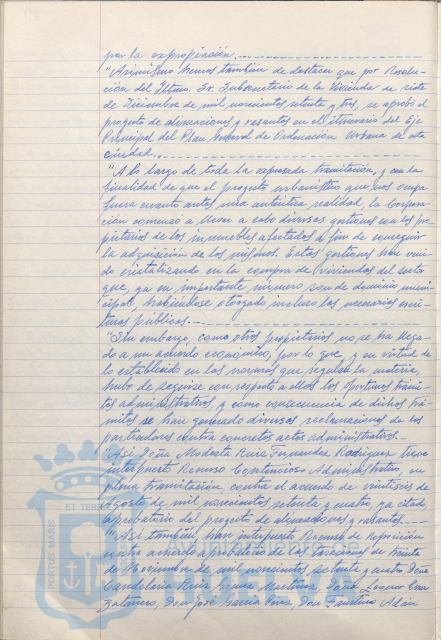 por la expropiación.
"Asimismo hemos también de destacar que por Resolu-
ción del Iltmo. Sr. Subsecretario de la Vivienda de siete
de Diciembre de mil novecientos setenta y tres, se aprobó el
proyecto de alineaciones y rasantes en el itinerario del Eje
Principal del Plan General de Ordenación Urbana de esta
ciudad.
"A lo largo de toda la expresada tramitación, y con la
finalidad de que el proyecto urbanístico que nos ocupa
fuera cuanto antes una auténtica realidad, la Corpora-
ción comenzó a llevar a cabo diversas gestiones con los pro-
pietarios de los inmuebles afectados a fin de conseguir
la adquisición de los mismos. Estas gestiones han veni-
do cristalizando en la compra de viviendas del sector
que, ya en importante número son de dominio muni-
cipal, habiéndose otorgado incluso las necesarias escri-
turas públicas.
"Sin embargo, como otros propietarios no se ha llega-
do a un acuerdo económico, por lo que, y en virtud de
lo establecido en las normas que regulan la materia,
hubo de seguirse con respecto a ellos los oportunos trámi-
tes administrativos, y como consecuencia de dichos trá-
mites se han generado diversas reclamaciones de los
particulares contra concretos actos administrativos.
"Así Doña Modesta Ruiz Fernandez Rodriguez tiene
interpuesto Recurso Contencioso Administrativo, en
plena tramitación, contra el acuerdo de veintiseis de
Agosto de mil novecientos setenta y cuatro, ya citado,
aprobatorio del proyecto de alineaciones y rasantes.
"Así también, han interpuesto Recurso de Reposición
contra acuerdo aprobatorio de las tasaciones de treinta
de Noviembre de mil novecientos setenta y cuatro Doña
Candelaria Ruiz Martinez, Doña Cruz
Don José Garcia Don Faustino
PORTUS MARIS
ET TERRAE